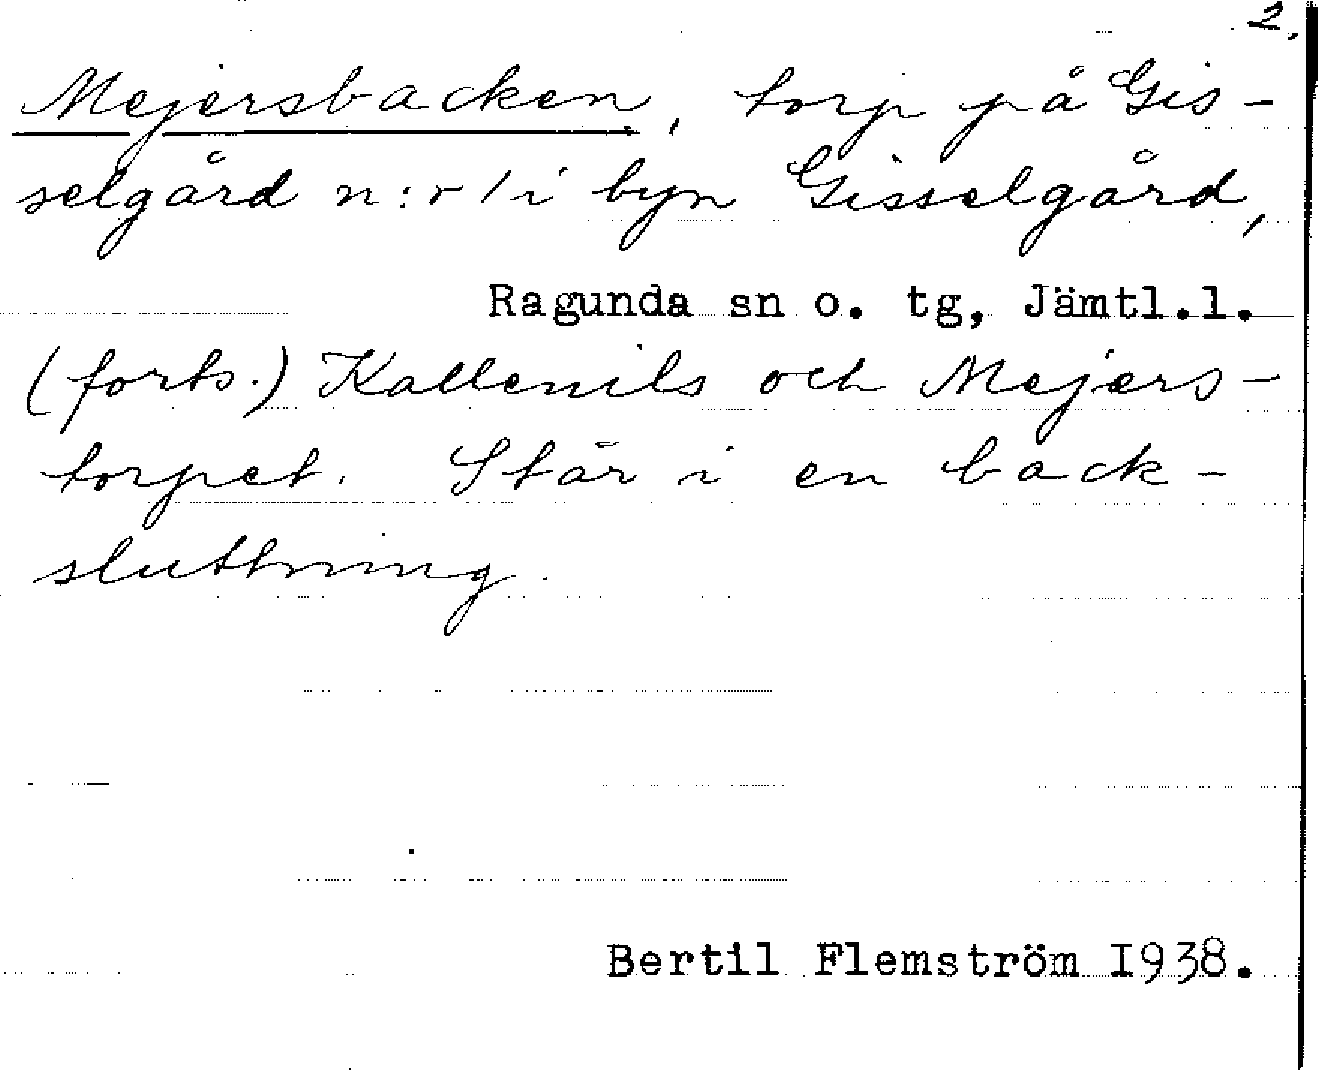 2.
Mejersbacken, torp på Gis-
selgård n:r 1 i byn Gisselgård,
Ragunda sn o. tg, Jämtl.l.
(forts.) Kallenils och Mejers-
torpet. Står i en back-
sluttning.
Bertil Flemström I938.